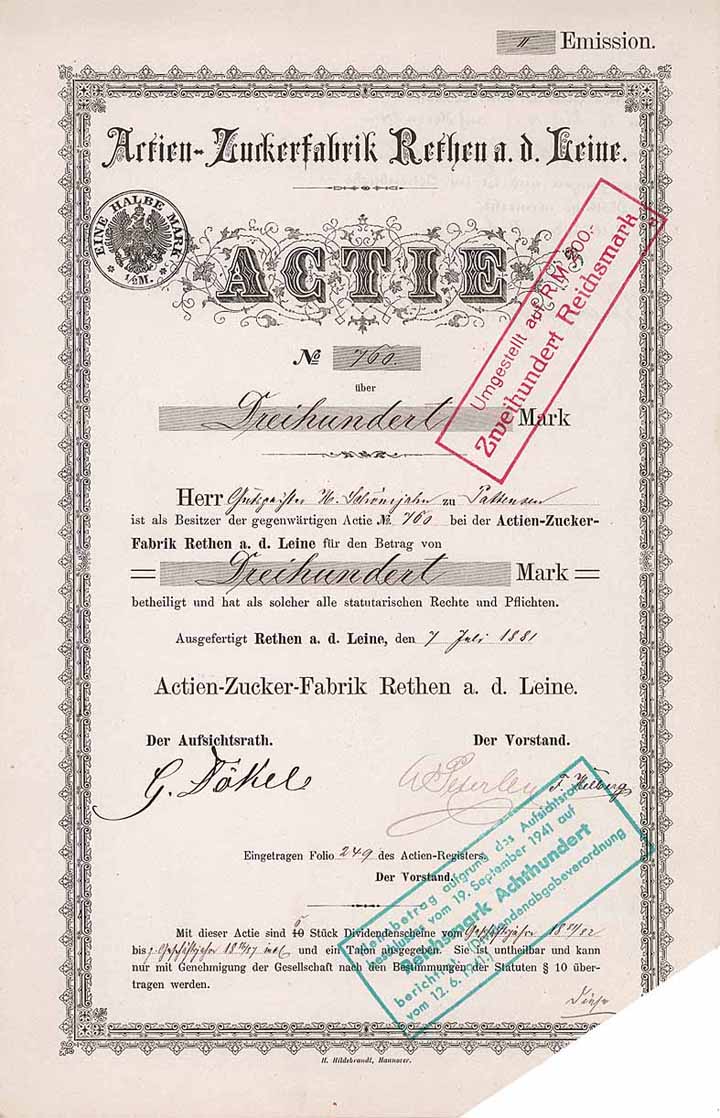 II Emission.
Actien-Zuckerfabrik Rethen a. d. Leine.
EINE HALBE MARK
½ M.
ACTIE
Umgestellt auf R.M. 200.-
Zweihundert Reichsmark
No 760.
über
Dreihundert Mark
Herr Schönejahn zu Pattensen
ist als Besitzer der gegenwärtigen Actie No 760 bei der Actien-Zucker-
Fabrik Rethen a. d. Leine für den Betrag von
= Dreihundert Mark =
betheiligt und hat als solcher alle statutarischen Rechte und Pflichten.
Ausgefertigt Rethen a. d. Leine, den 7 Juli 1881
Actien-Zucker-Fabrik Rethen a. d. Leine.
Der Aufsichtsrath. Der Vorstand.
G. Dökel
Eingetragen Folio 249 des Actien-Registers.
Der Vorstand.
Nennbetrag aufgrund des Aufsichtsrats-
beschlusses vom 19. September 1941 auf
Reichsmark Achthundert
berichtigt (Dividendenabgabeverordnung
vom 12. 6. 1941)
Mit dieser Actie sind 10 Stück Dividendenscheine vom Geschäftsjahr 1881/82
bis Geschäftsjahr incl und ein Talon ausgegeben. Sie ist untheilbar und kann
nur mit Genehmigung der Gesellschaft nach den Bestimmungen der Statuten § 10 über-
tragen werden.
H. Hildebrandt, Hannover.